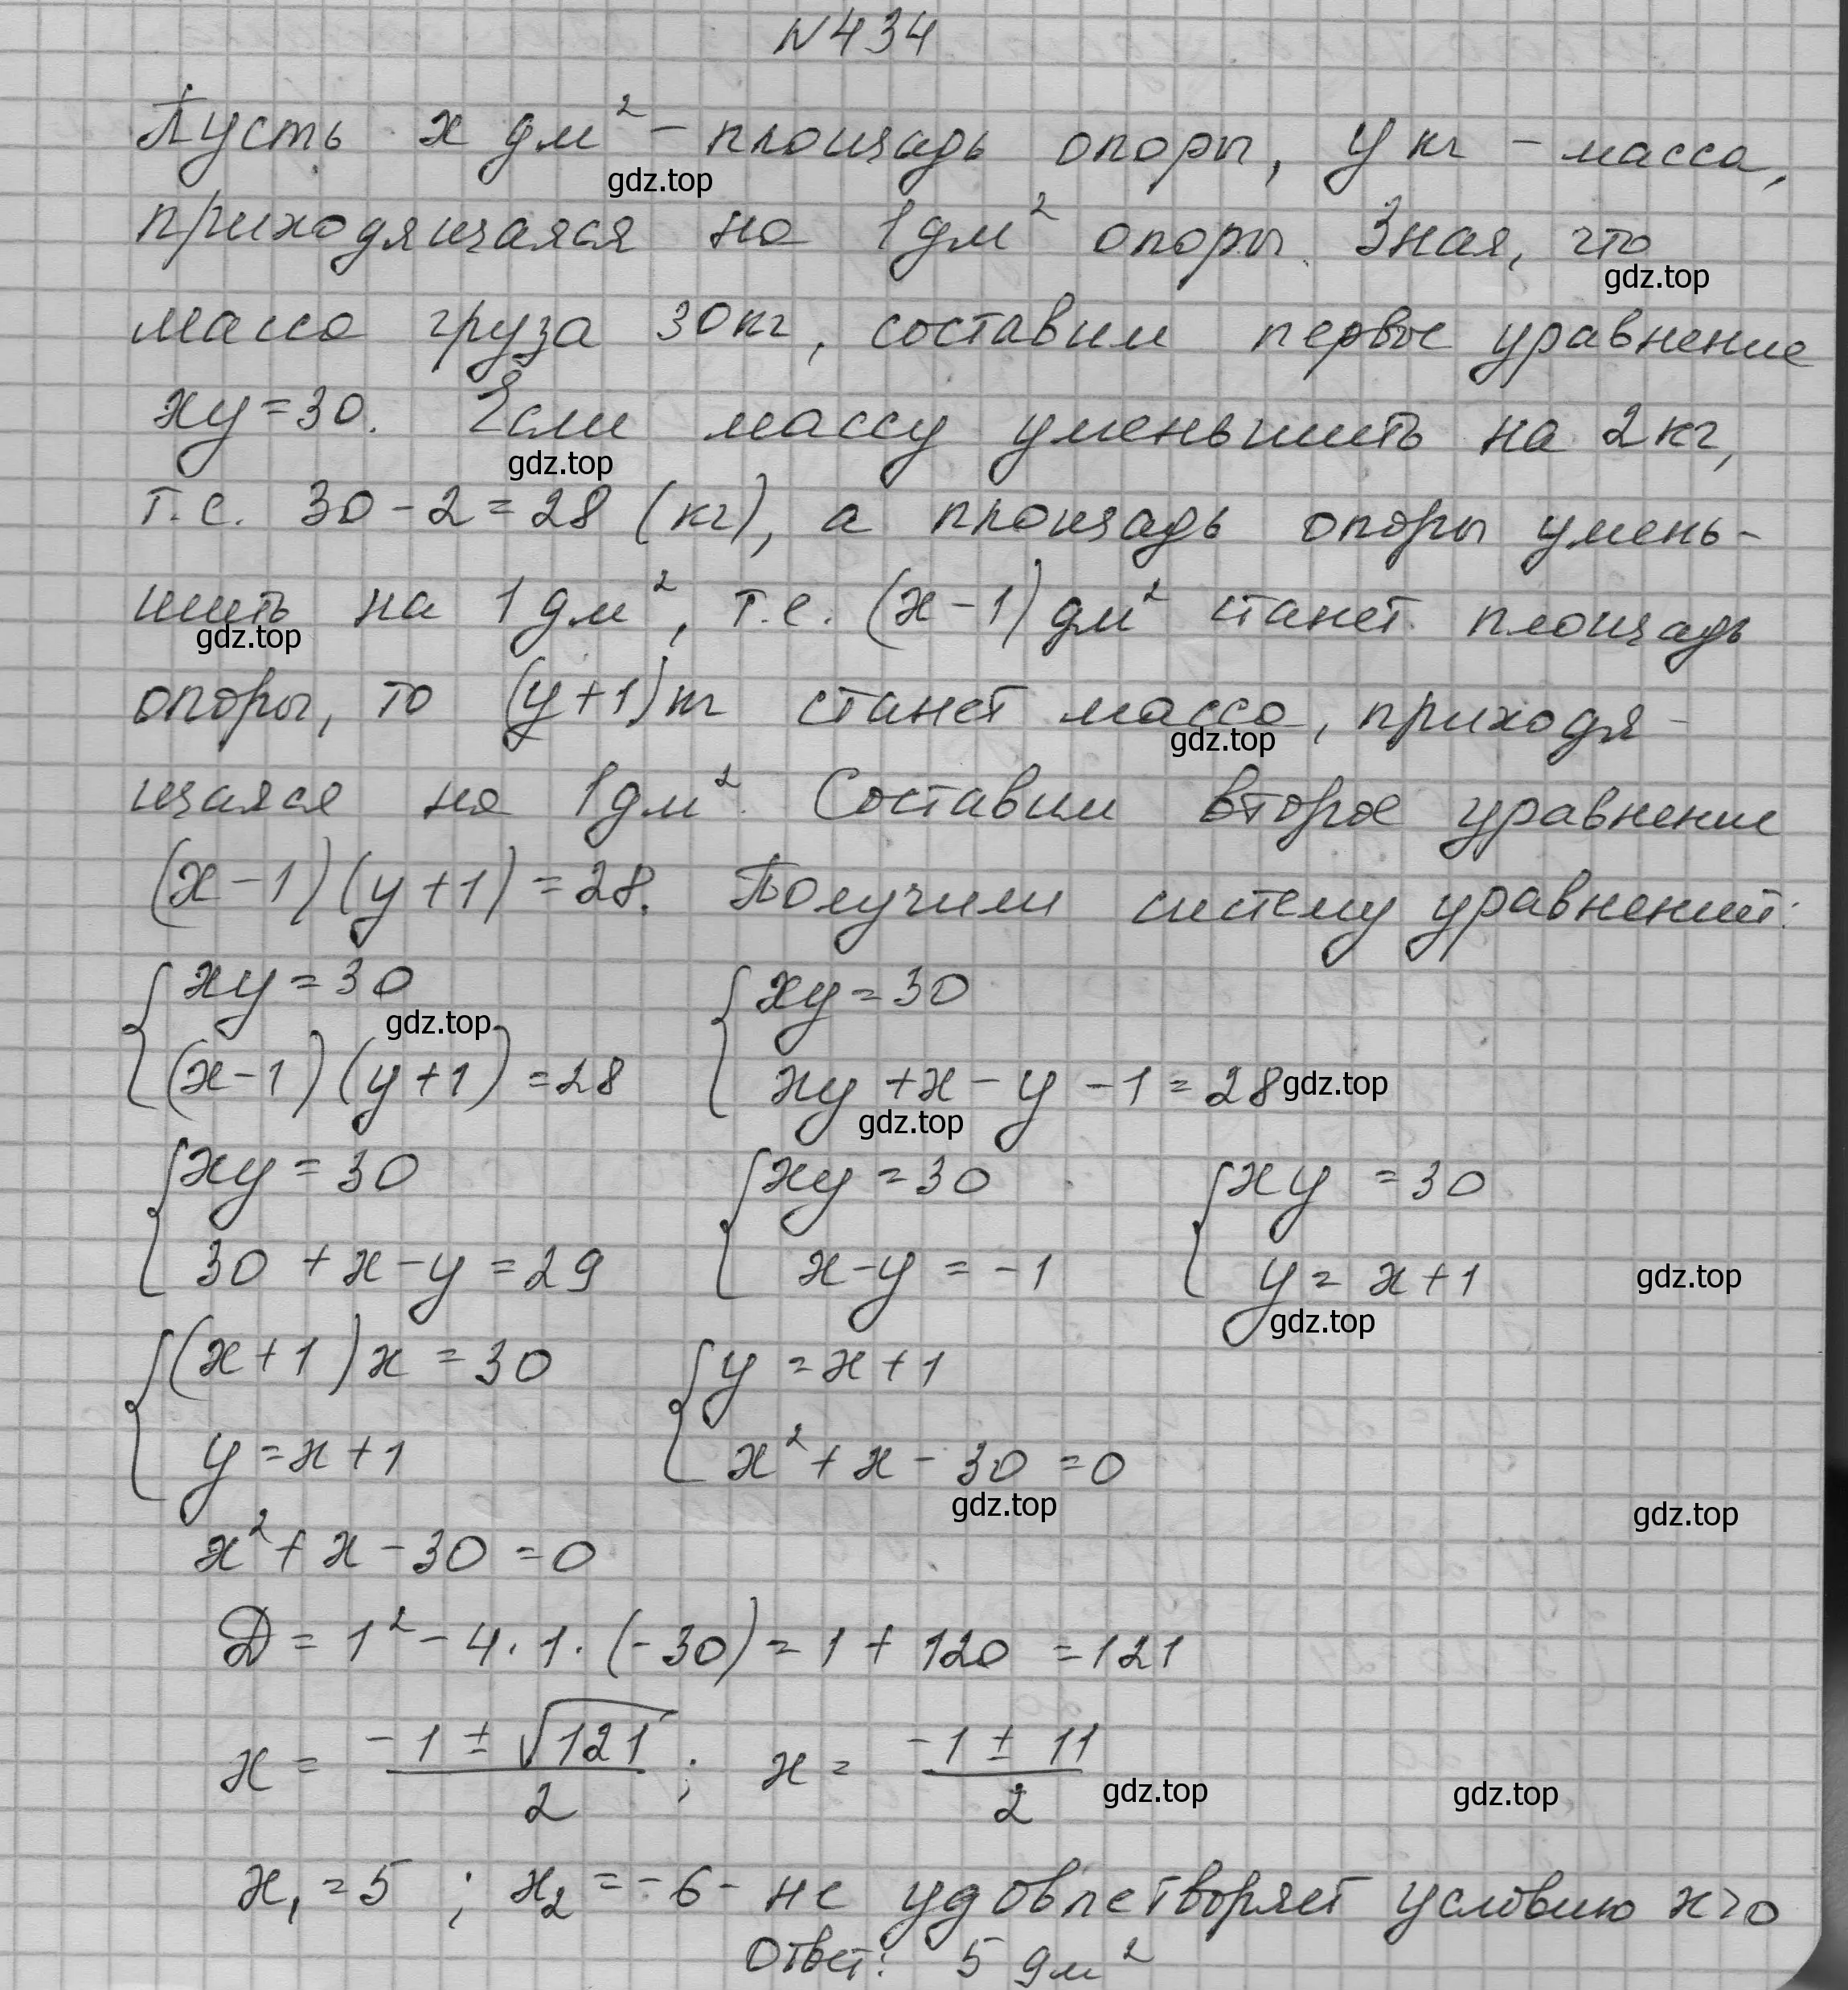 №434
Пусть x дм² – площадь опоры, y кг – масса,
gdz.top
приходящаяся на 1 дм² опоры. Зная, что
gdz.top
масса груза 30 кг, составим первое уравнение
xy = 30. Если массу уменьшить на 2 кг,
gdz.top
т.е. 30 - 2 = 28 (кг), а площадь опоры умень-
шить на 1 дм², т.е. (x - 1) дм² станет площадь
gdz.top
опоры, то (y + 1) кг станет масса, приходя-
gdz.top
щаяся на 1 дм². Составим второе уравнение
(x - 1)(y + 1) = 28. Получим систему уравнений:
{ xy = 30 { xy = 30
gdz.top
(x - 1)(y + 1) = 28 xy + x - y - 1 = 28 gdz.top
gdz.top
{ xy = 30 { xy = 30 { xy = 30
30 + x - y = 29 x - y = -1 y = x + 1 gdz.top
gdz.top
{ (x + 1)x = 30 { y = x + 1
y = x + 1 x² + x - 30 = 0
gdz.top gdz.top
x² + x - 30 = 0
D = 1² - 4 · 1 · (-30) = 1 + 120 = 121
x = (-1 ± √121)/2 ; x = (-1 ± 11)/2 gdz.top gdz.top
x₁ = 5 ; x₂ = -6 - не удовлетворяет условию x>0
Ответ: 5 дм²